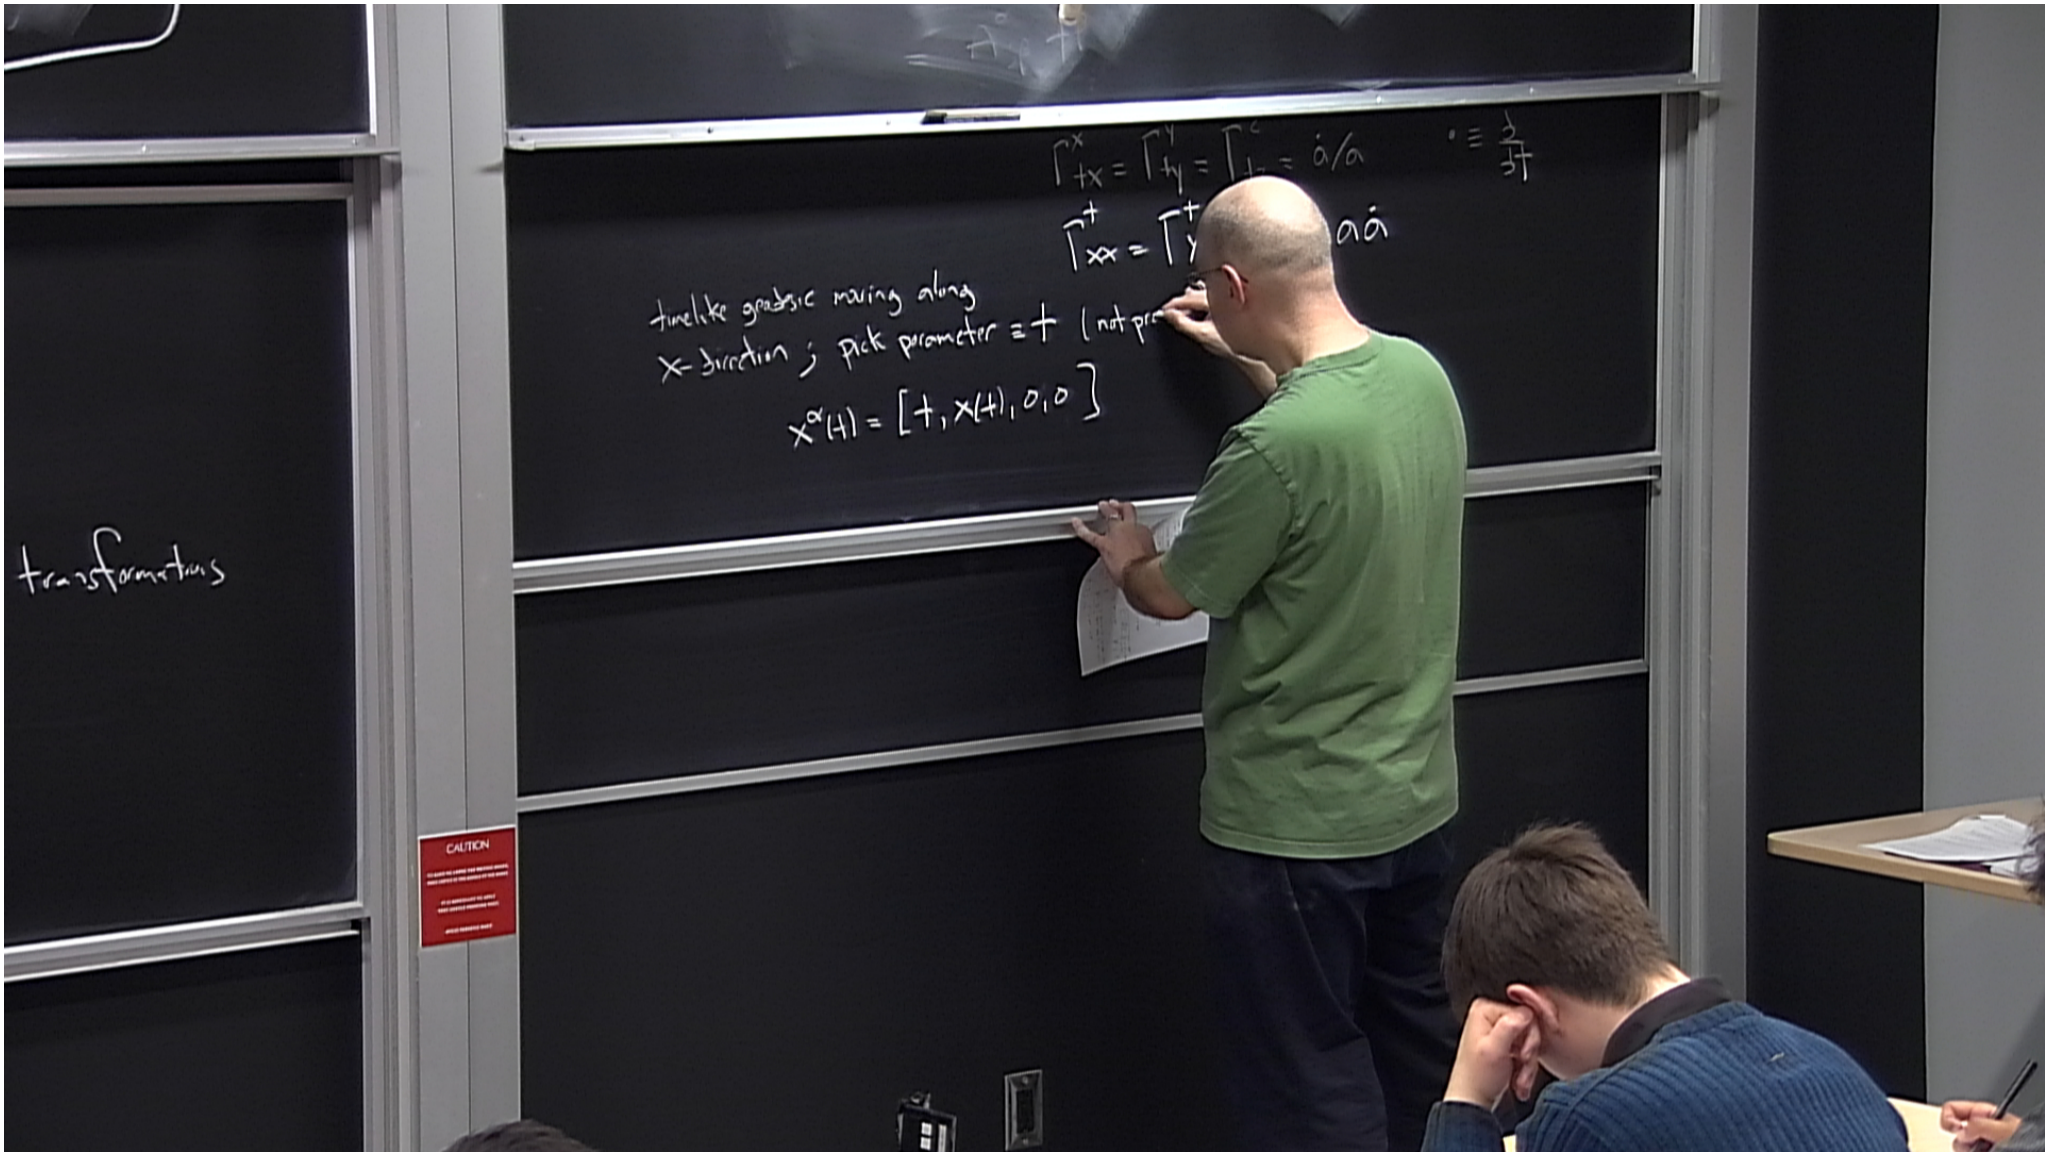 Γ^x_tx = Γ^y_ty = Γ^z_tz = ȧ/a   · ≡ ∂/∂t
Γ^t_xx = Γ^t aȧ
timelike geodesic moving along
x-direction ; pick parameter ≡ t (not pro
x^α(t) = [t, x(t), 0, 0]
transformations
CAUTION